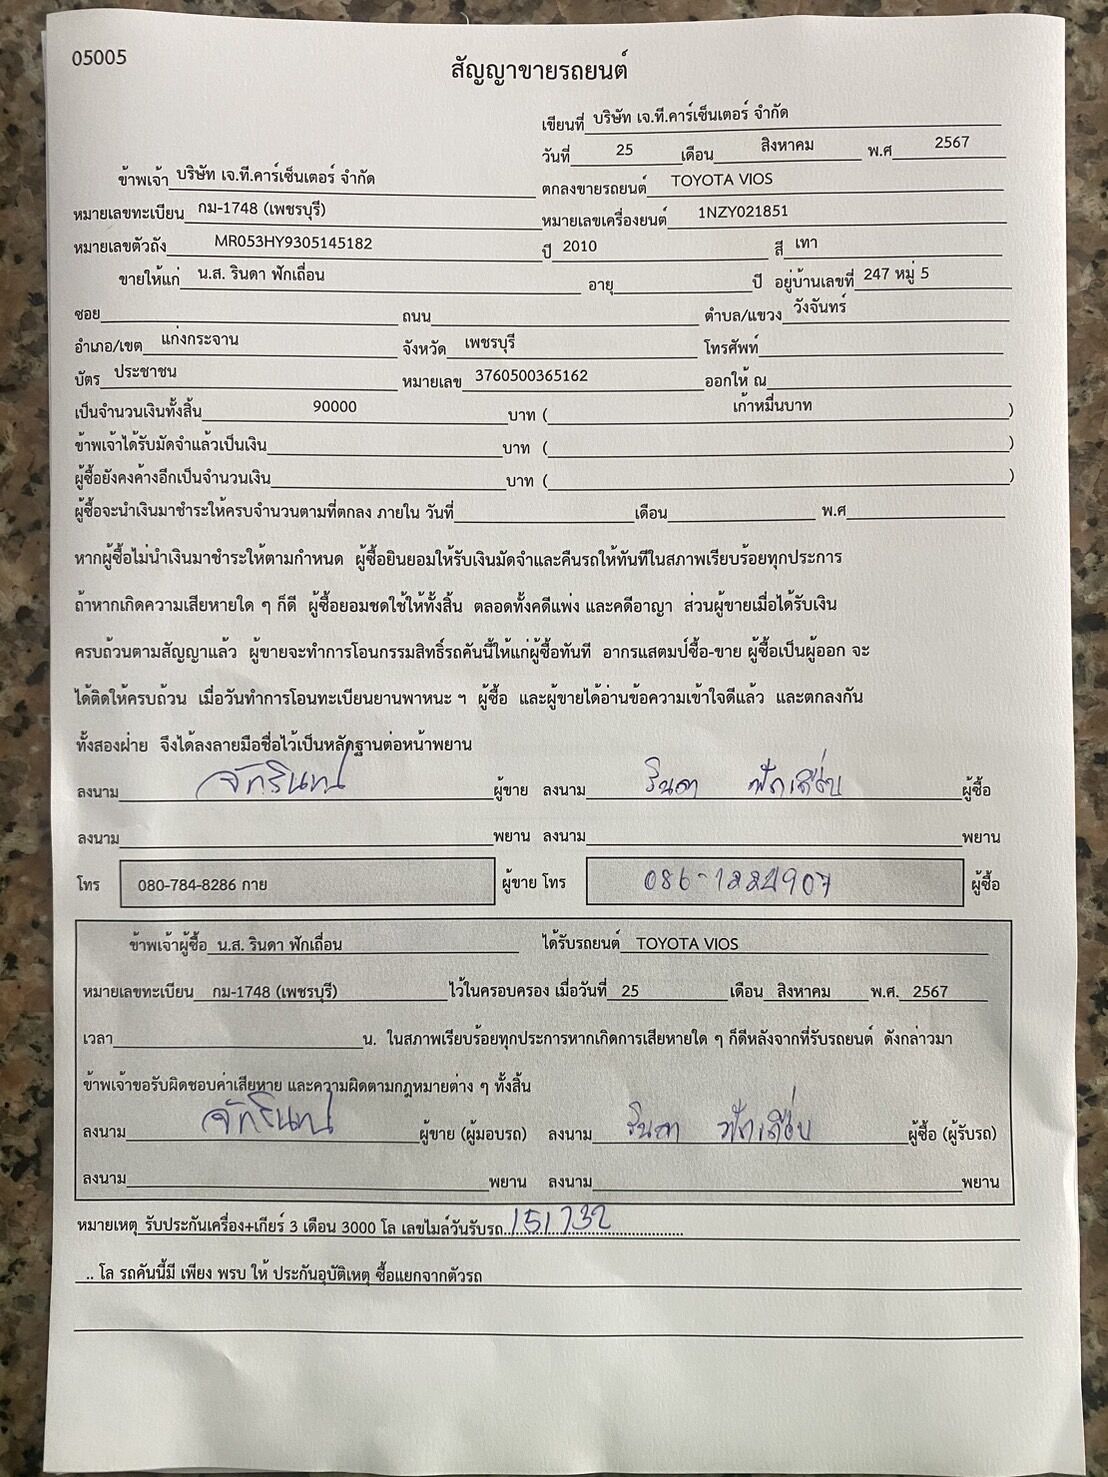 05005
สัญญาขายรถยนต์
เขียนที่ บริษัท เจ.ที.คาร์เซ็นเตอร์ จำกัด
วันที่ 25 เดือน สิงหาคม พ.ศ 2567
ข้าพเจ้า บริษัท เจ.ที.คาร์เซ็นเตอร์ จำกัด ตกลงขายรถยนต์ TOYOTA VIOS
หมายเลขทะเบียน กม-1748 (เพชรบุรี) หมายเลขเครื่องยนต์ 1NZY021851
หมายเลขตัวถัง MR053HY9305145182 ปี 2010 สี เทา
ขายให้แก่ น.ส. รินดา ฟักเถื่อน อายุ ปี อยู่บ้านเลขที่ 247 หมู่ 5
ซอย ถนน ตำบล/แขวง วังจันทร์
อำเภอ/เขต แก่งกระจาน จังหวัด เพชรบุรี โทรศัพท์
บัตร ประชาชน หมายเลข 3760500365162 ออกให้ ณ
เป็นจำนวนเงินทั้งสิ้น 90000 บาท ( เก้าหมื่นบาท )
ข้าพเจ้าได้รับมัดจำแล้วเป็นเงิน บาท ( )
ผู้ซื้อยังคงค้างอีกเป็นจำนวนเงิน บาท ( )
ผู้ซื้อจะนำเงินมาชำระให้ครบจำนวนตามที่ตกลง ภายใน วันที่ เดือน พ.ศ
หากผู้ซื้อไม่นำเงินมาชำระให้ตามกำหนด ผู้ซื้อยินยอมให้รับเงินมัดจำและคืนรถให้ทันทีในสภาพเรียบร้อยทุกประการ
ถ้าหากเกิดความเสียหายใด ๆ ก็ดี ผู้ซื้อยอมชดใช้ให้ทั้งสิ้น ตลอดทั้งคดีแพ่ง และคดีอาญา ส่วนผู้ขายเมื่อได้รับเงิน
ครบถ้วนตามสัญญาแล้ว ผู้ขายจะทำการโอนกรรมสิทธิ์รถคันนี้ให้แก่ผู้ซื้อทันที อากรแสตมป์ซื้อ-ขาย ผู้ซื้อเป็นผู้ออก จะ
ได้ติดให้ครบถ้วน เมื่อวันทำการโอนทะเบียนยานพาหนะ ฯ ผู้ซื้อ และผู้ขายได้อ่านข้อความเข้าใจดีแล้ว และตกลงกัน
ทั้งสองฝ่าย จึงได้ลงลายมือชื่อไว้เป็นหลักฐานต่อหน้าพยาน
ลงนาม จักรินทน์ ผู้ขาย ลงนาม รินดา ฟักเถื่อน ผู้ซื้อ
ลงนาม พยาน ลงนาม พยาน
โทร 080-784-8286 กาย ผู้ขาย โทร 086-1224907 ผู้ซื้อ
ข้าพเจ้าผู้ซื้อ น.ส. รินดา ฟักเถื่อน ได้รับรถยนต์ TOYOTA VIOS
หมายเลขทะเบียน กม-1748 (เพชรบุรี) ไว้ในครอบครอง เมื่อวันที่ 25 เดือน สิงหาคม พ.ศ. 2567
เวลา น. ในสภาพเรียบร้อยทุกประการหากเกิดการเสียหายใด ๆ ก็ดีหลังจากที่รับรถยนต์ ดังกล่าวมา
ข้าพเจ้าขอรับผิดชอบค่าเสียหาย และความผิดตามกฎหมายต่าง ๆ ทั้งสิ้น
ลงนาม จักรินทน์ ผู้ขาย (ผู้มอบรถ) ลงนาม รินดา ฟักเถื่อน ผู้ซื้อ (ผู้รับรถ)
ลงนาม พยาน ลงนาม พยาน
หมายเหตุ รับประกันเครื่อง+เกียร์ 3 เดือน 3000 โล เลขไมล์วันรับรถ 151732
.. โล รถคันนี้มี เพียง พรบ ให้ ประกันอุบัติเหตุ ซื้อแยกจากตัวรถ